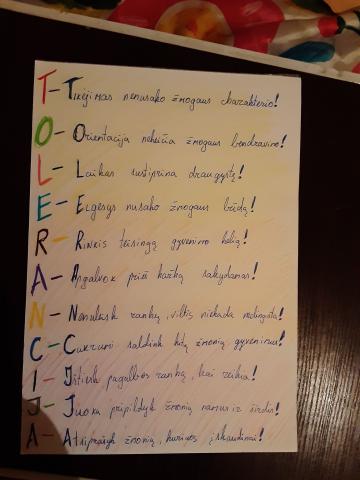 T - Tikėjimas nenusako žmogaus charakterio!
O - Orientacija nekeičia žmogaus bendravimo!
L - Laikas sustiprina draugystę!
E - Elgesys nusako žmogaus būdą!
R - Rinkis teisingą gyvenimo kelią!
A - Apgalvok prieš kažką sakydamas!
N - Nenuleisk rankų, viltis niekada nedingsta!
C - Cukrumi saldink kitų žmonių gyvenimus!
I - Ištiesk pagalbos ranką, kai reikia!
J - Juoku pripildyk žmonių namus ir širdis!
A - Atsiprašyk žmonių, kuriuos įskaudinai!